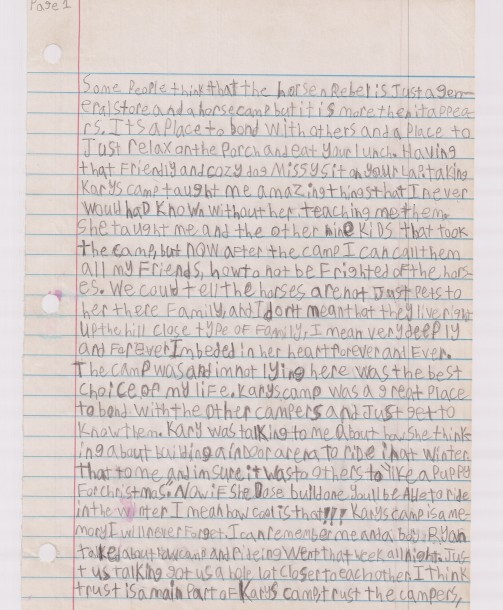 Page 1
Some People think that the horse n Rebel is Just a gen-
eral store and a horse camp but it is more then it appea-
rs. It's a Place to bond with others and a place to
Just relax on the Porch and eat your lunch. Having
that Friendly and cozy dog Missy sit on your Lap. taking
Karys camp taught me amazing things that I never
would had Known without her teaching me them.
She taught me and the other nine KiDS that took
the camp, but now after the camp I can call them
all my Friends, how to not be Frighted of the hors-
es. We could tell the horses are not Just Pets to
her there Family, and I don't mean that they live right
up the hill close type of Family, I mean very deeply
and Forever Imbeded in her heart forever and Ever.
The camp was and im not lying here was the best
choice of my life. Karys camp was a great Place
to bond with the other campers and Just get to
Know them. Kary was talking to me about how she think
ing about building a inDoor arena to ride in at winter
that to me and im sure it was to others to "like a Puppy
For christmas". Now if She Dose build one you'll be Able to ride
in the winter I mean how cool is that!!! Karys camp is a me-
mory I will never Forget. I can remember me and a boy Ryan
talked about camp and Rideing Went that week all night. Jus-
t us talking got us a hole lot closer to each other. I think
trust is a main Part of Karys camp, trust the campers,